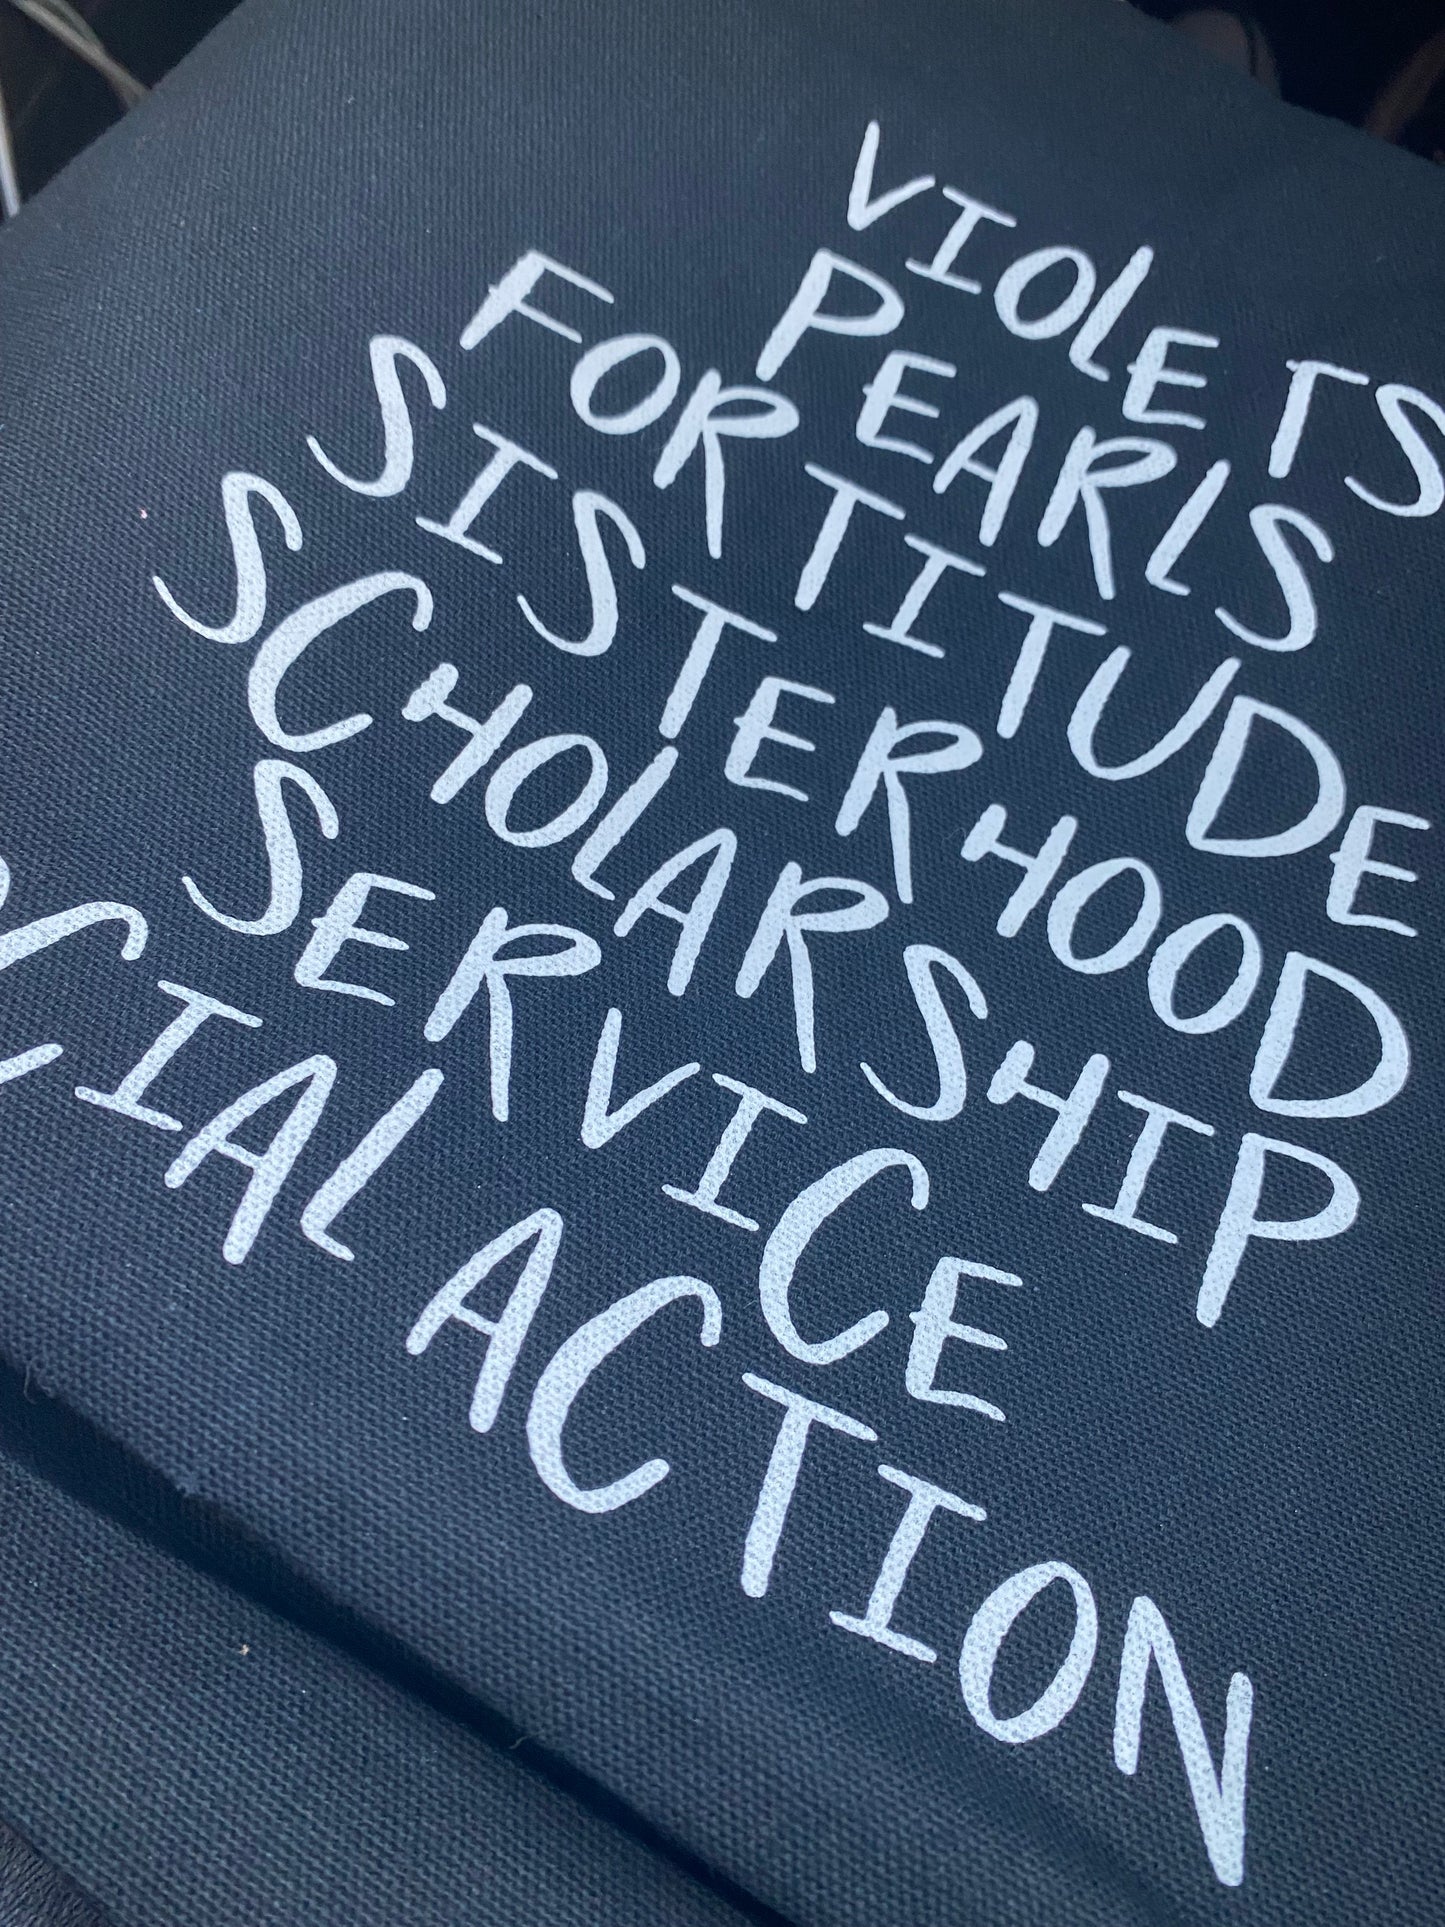 VIOLETS
PEARLS
FORTITUDE
SISTERHOOD
SCHOLARSHIP
SERVICE
SOCIAL ACTION